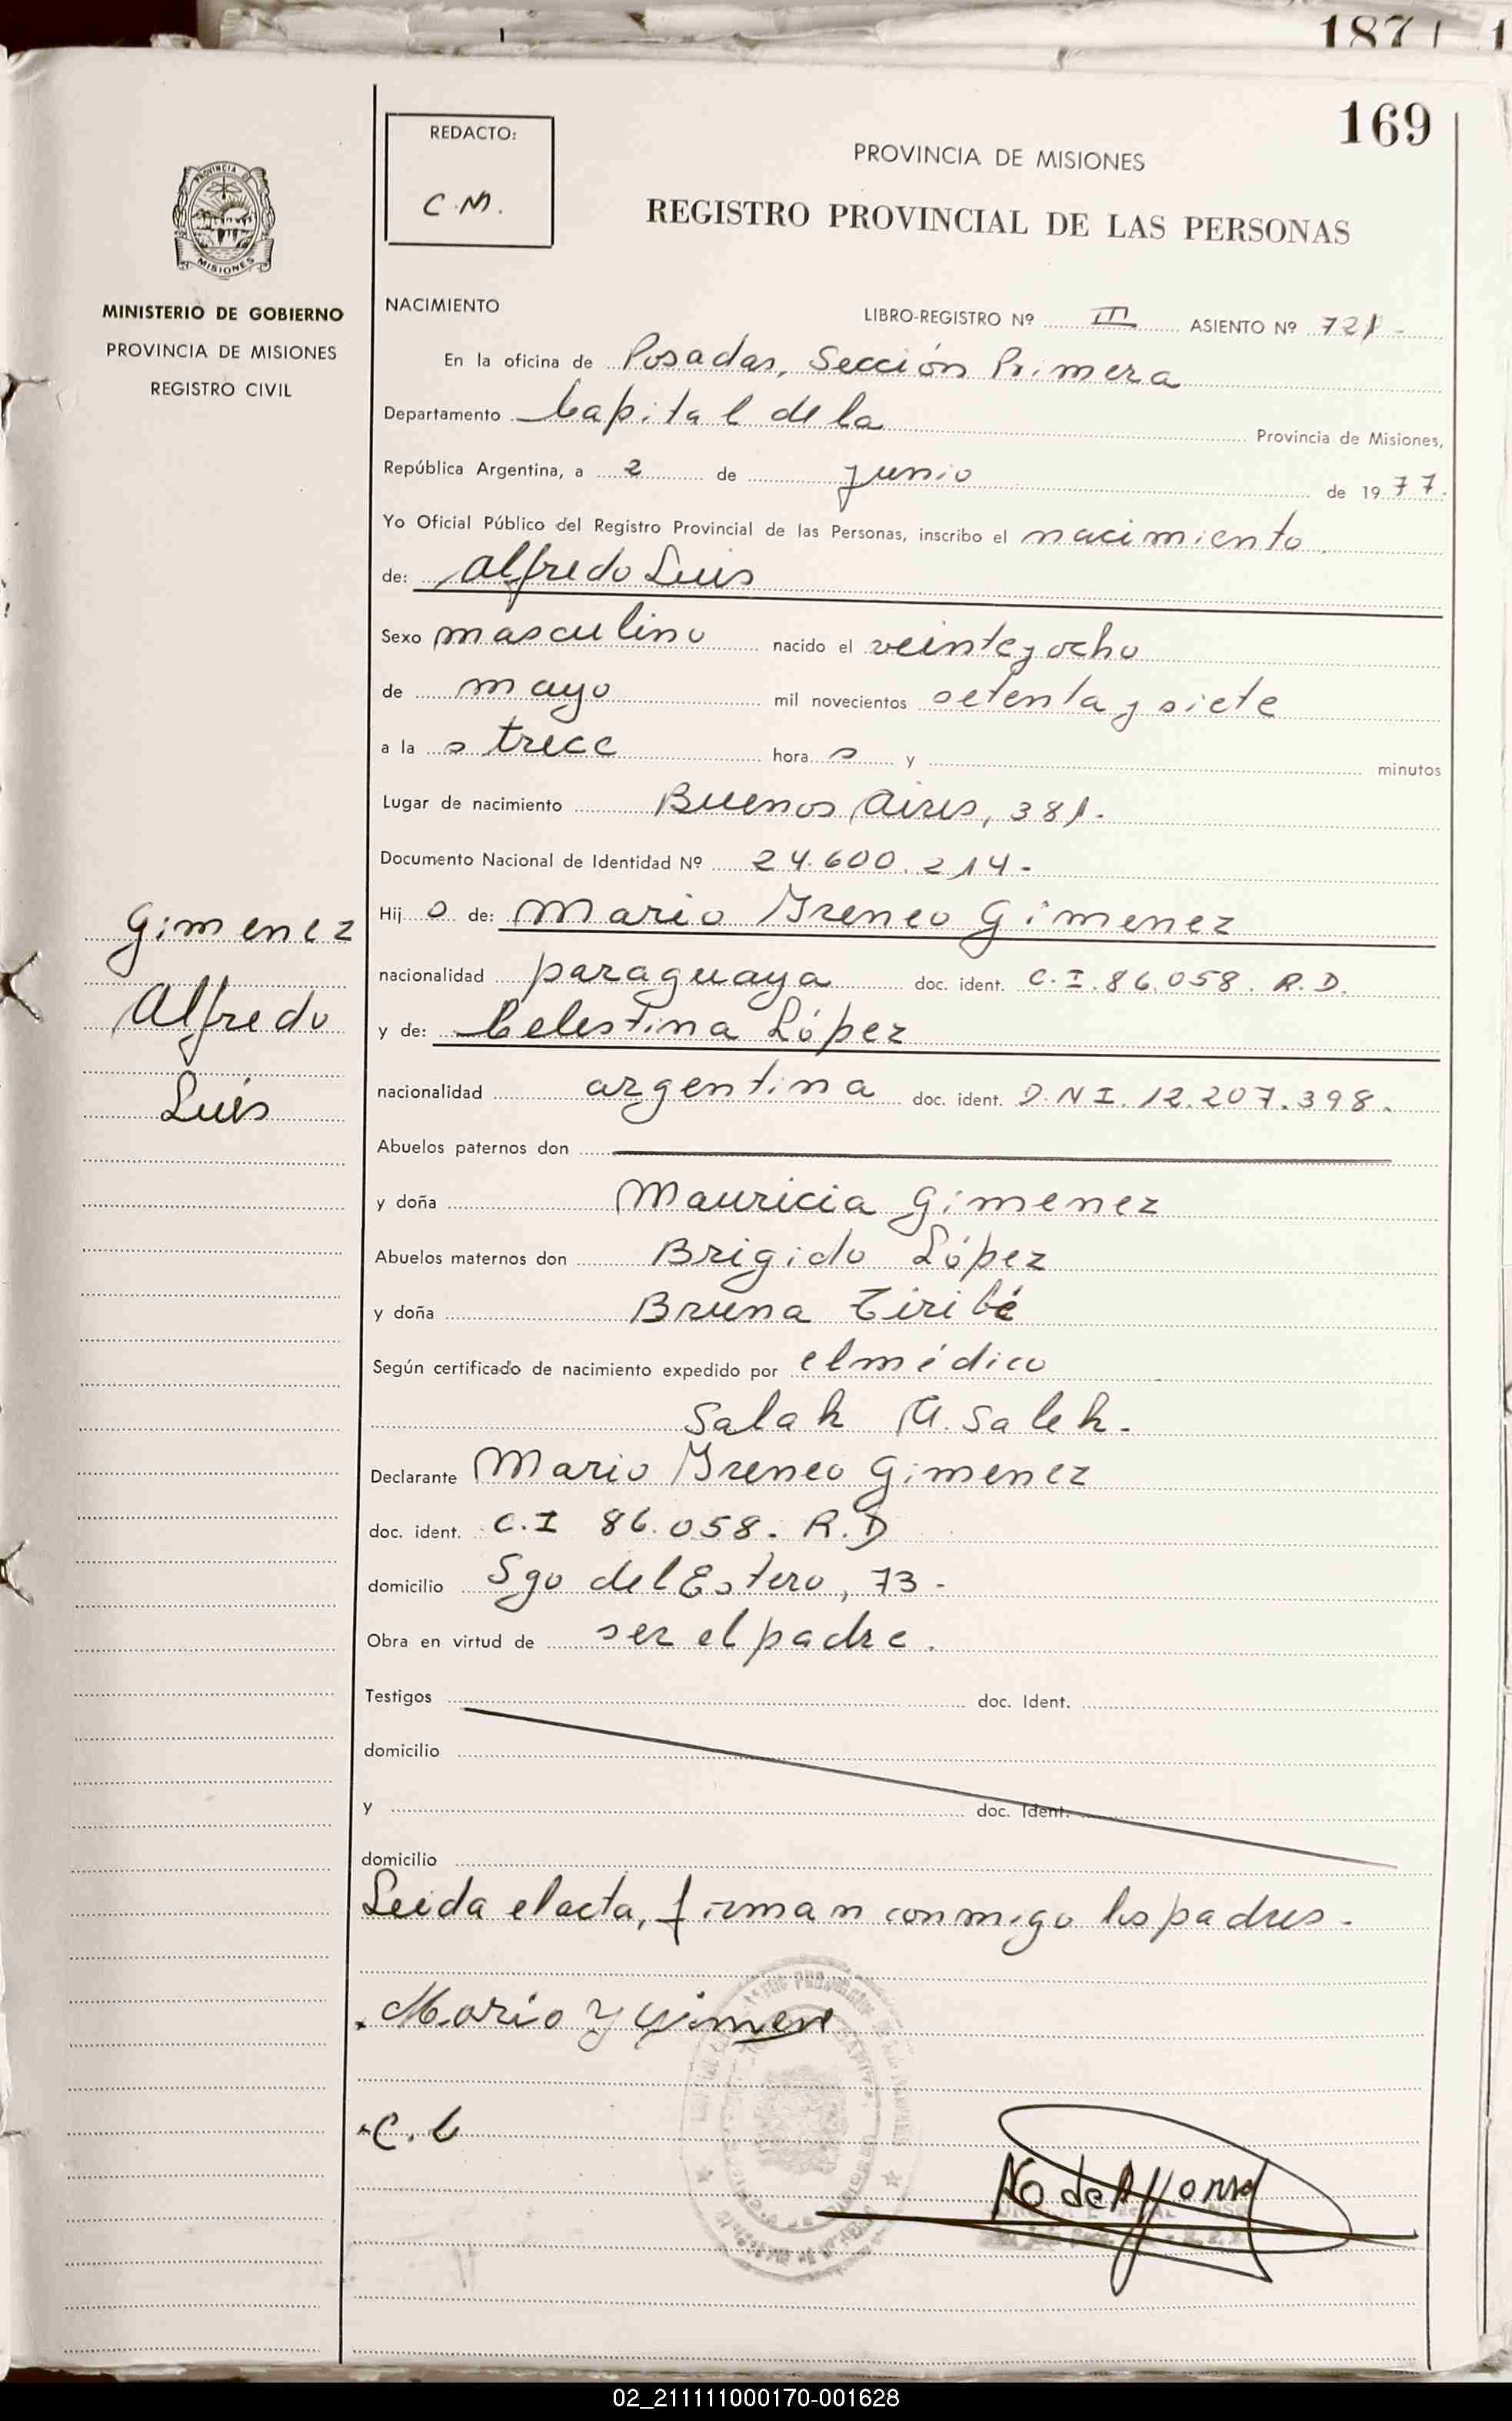 187 1 1
169
REDACTO:
C.M.
PROVINCIA DE MISIONES
REGISTRO PROVINCIAL DE LAS PERSONAS
PROVINCIA DE
MISIONES
MINISTERIO DE GOBIERNO
PROVINCIA DE MISIONES
REGISTRO CIVIL
NACIMIENTO LIBRO-REGISTRO Nº III ASIENTO Nº 721-
En la oficina de Posadas, Sección Primera
Departamento Capital de la Provincia de Misiones,
República Argentina, a 2 de Junio de 1977.
Yo Oficial Público del Registro Provincial de las Personas, inscribo el nacimiento
de: Alfredo Luis
Sexo masculino nacido el veinte y ocho
de mayo mil novecientos setenta y siete
a la s trece hora s y minutos
Lugar de nacimiento Buenos Aires, 381.
Documento Nacional de Identidad Nº 24.600.214-
Hij o de: Mario Ireneo Gimenez
nacionalidad paraguaya doc. ident. C.I. 86.058. R.D.
y de: Celestina López
nacionalidad argentina doc. ident. D.N.I. 12.207.398.
Gimenez
Alfredo
Luis
Abuelos paternos don
y doña Mauricia Gimenez
Abuelos maternos don Brigido López
y doña Bruna Tiribé
Según certificado de nacimiento expedido por el médico
Salah A. Saleh.
Declarante Mario Ireneo Gimenez
doc. ident. C.I 86.058. R.D
domicilio Sgo del Estero, 73-
Obra en virtud de ser el padre.
Testigos doc. Ident.
domicilio
y doc. Ident.
domicilio
Leida el acta, firman conmigo los padres-
Mario Y Gimene
C. L
02_211111000170-001628